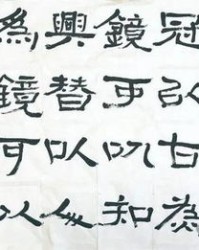 冠以古為
鏡可以知
興替以人
為鏡可以